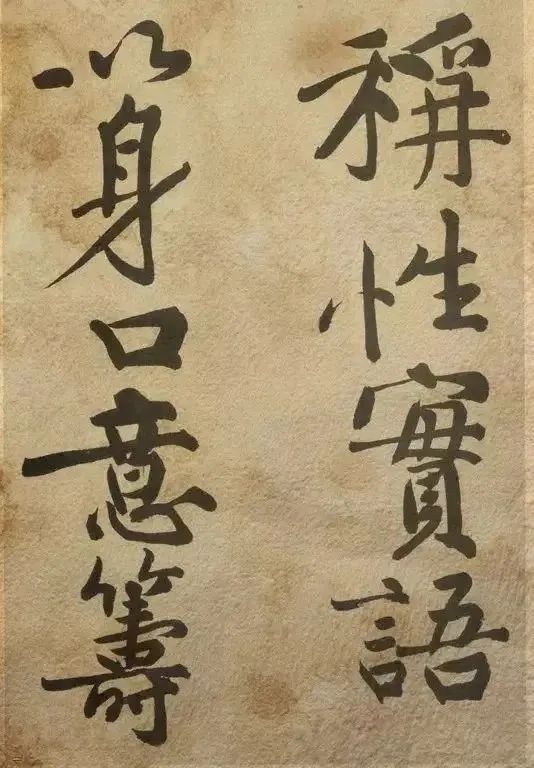 稱性實語
以身口意籌